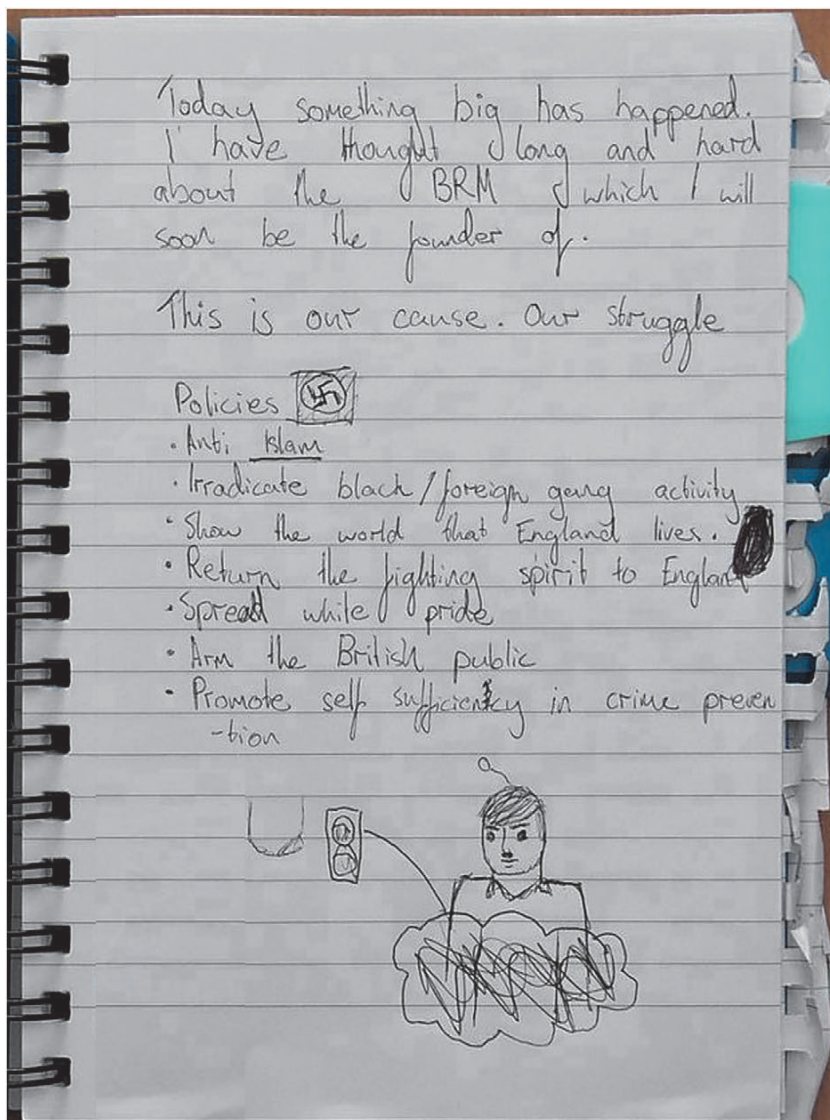 Today something big has happened.
I have thought long and hard
about the BRM which I will
soon be the founder of.
This is our cause. Our struggle
Policies
· Anti Islam
· Irradicate black/foreign gang activity
· Show the world that England lives.
· Return the fighting spirit to England
· Spread white pride
· Arm the British public
· Promote self sufficientcy in crime preven
-tion